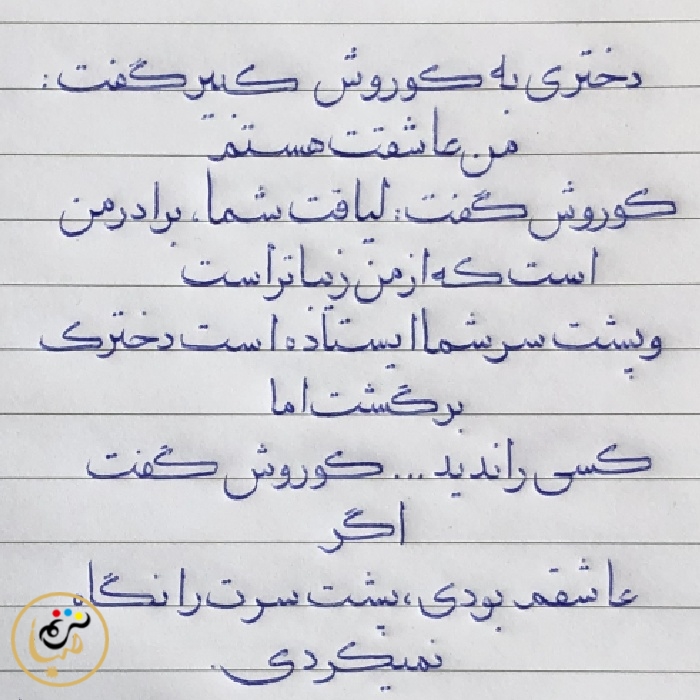 دختری به کوروش کبیر گفت:
من عاشقت هستم
کوروش گفت: لیاقت شما، برادر من
است که از من زیباتر است
و پشت سر شما ایستاده است دخترک
برگشت اما
کسی را ندید ... کوروش گفت
اگر
عاشقم بودی، پشت سرت را نگاه
نمیکردی.